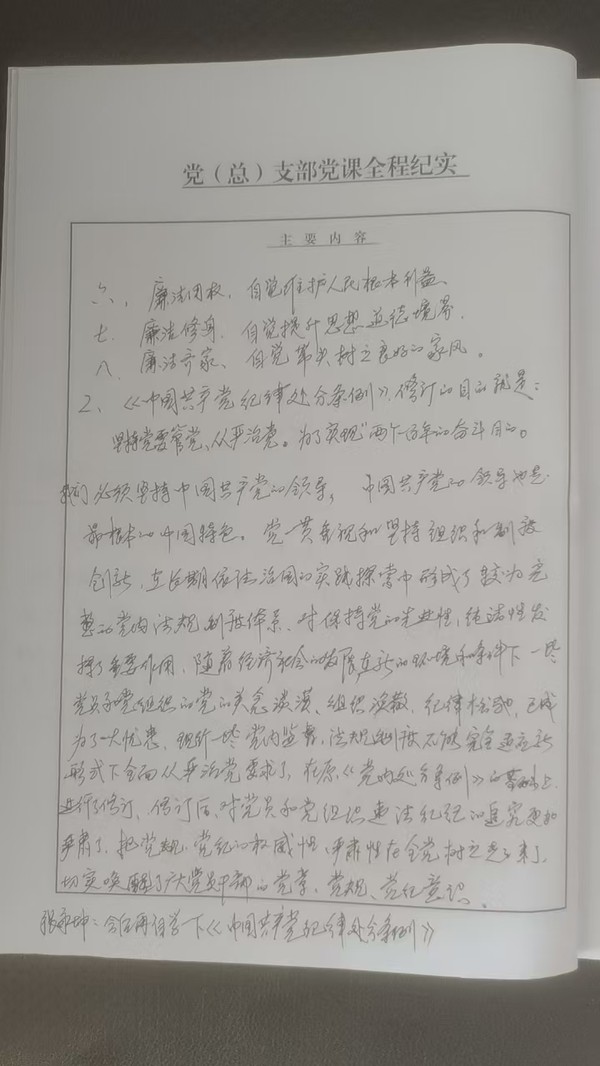 党（总）支部党课全程纪实
主要内容
六、廉洁用权，自觉维护人民根本利益、
七、廉洁修身，自觉提升思想道德境界，
八、廉洁齐家、自觉带头树立良好的家风。
2、《中国共产党纪律处分条例》，修订的目的就是：
坚持党要管党、从严治党。为了实现"两个百年的奋斗目的。
我们必须坚持中国共产党的领导， 中国共产党的领导也是
最根本的中国特色。党一贯重视和坚持组织和制度
创新，在长期依法治国的实践探索中形成了较为完
整的党内法规制度体系、对保持党的先进性，纯洁性发
挥了重要作用，随着经济社会的发展在新的环境和条件下一些
党员和党组织的党的关念淡漠、组织涣散、纪律松弛，已成
为了一大忧患，现所一些党内监督，法规制度不够完全适应新
形式下全面从严治党要求了，在原《党的处分条例》的基础上
进行了修订、修订后，对党员和党组织违法纪纪的追究更加
严肃了，把党规、党纪的权威性、严肃性在全党树立起来了，
切实唤醒了广大党员干部的党章、党规、党纪意识。
张永坤：会后再自学一下《中国共产党纪律处分条例》